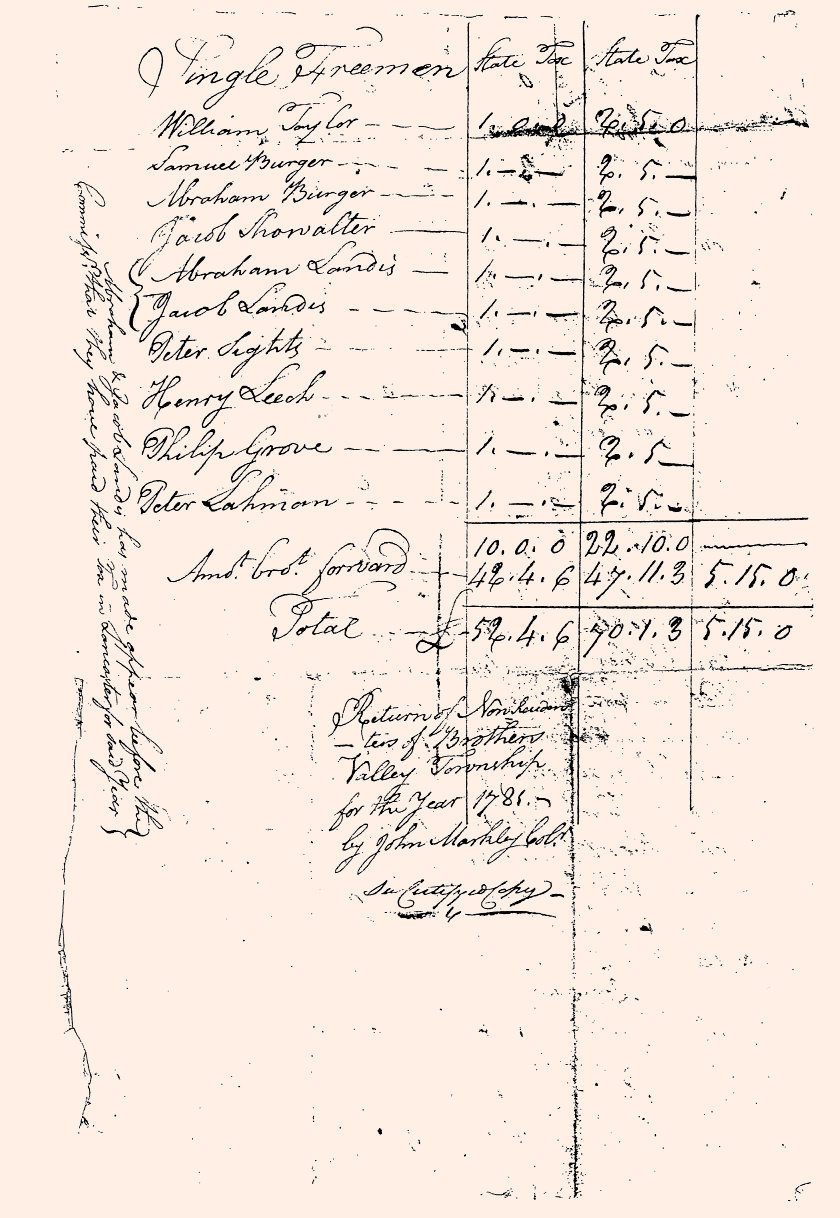 Single Freemen State Tax State Tax
William Taylor 1. 0. 0 2. 5. 0
Samuel Burger 1. — . — 2. 5. —
Abraham Burger 1. — . — 2. 5. —
Jacob Showalter 1. — . — 2. 5. —
Abraham Landis 1. — . — 2. 5. —
Jacob Landis 1. — . — 2. 5. —
Peter Sights 1. — . — 2. 5. —
Henry Leech 1. — . — 2. 5. —
Philip Grove 1. — . — 2. 5. —
Peter Lahman 1. — . — 2. 5. —
10. 0. 0 22. 10. 0
Amot. brot. forward 42. 4. 6 47. 11. 3 5. 15. 0
Total £ 52. 4. 6 70. 1. 3 5. 15. 0
Abraham & Jacob Landis has made appear before the
Commissrs. that they have paid their tax in Lancaster for said Year
Return of Non Residen
– ters of Brothers
Valley Township
for the Year 1785. –
by John Markley Colr.
See Certifyed Copy –